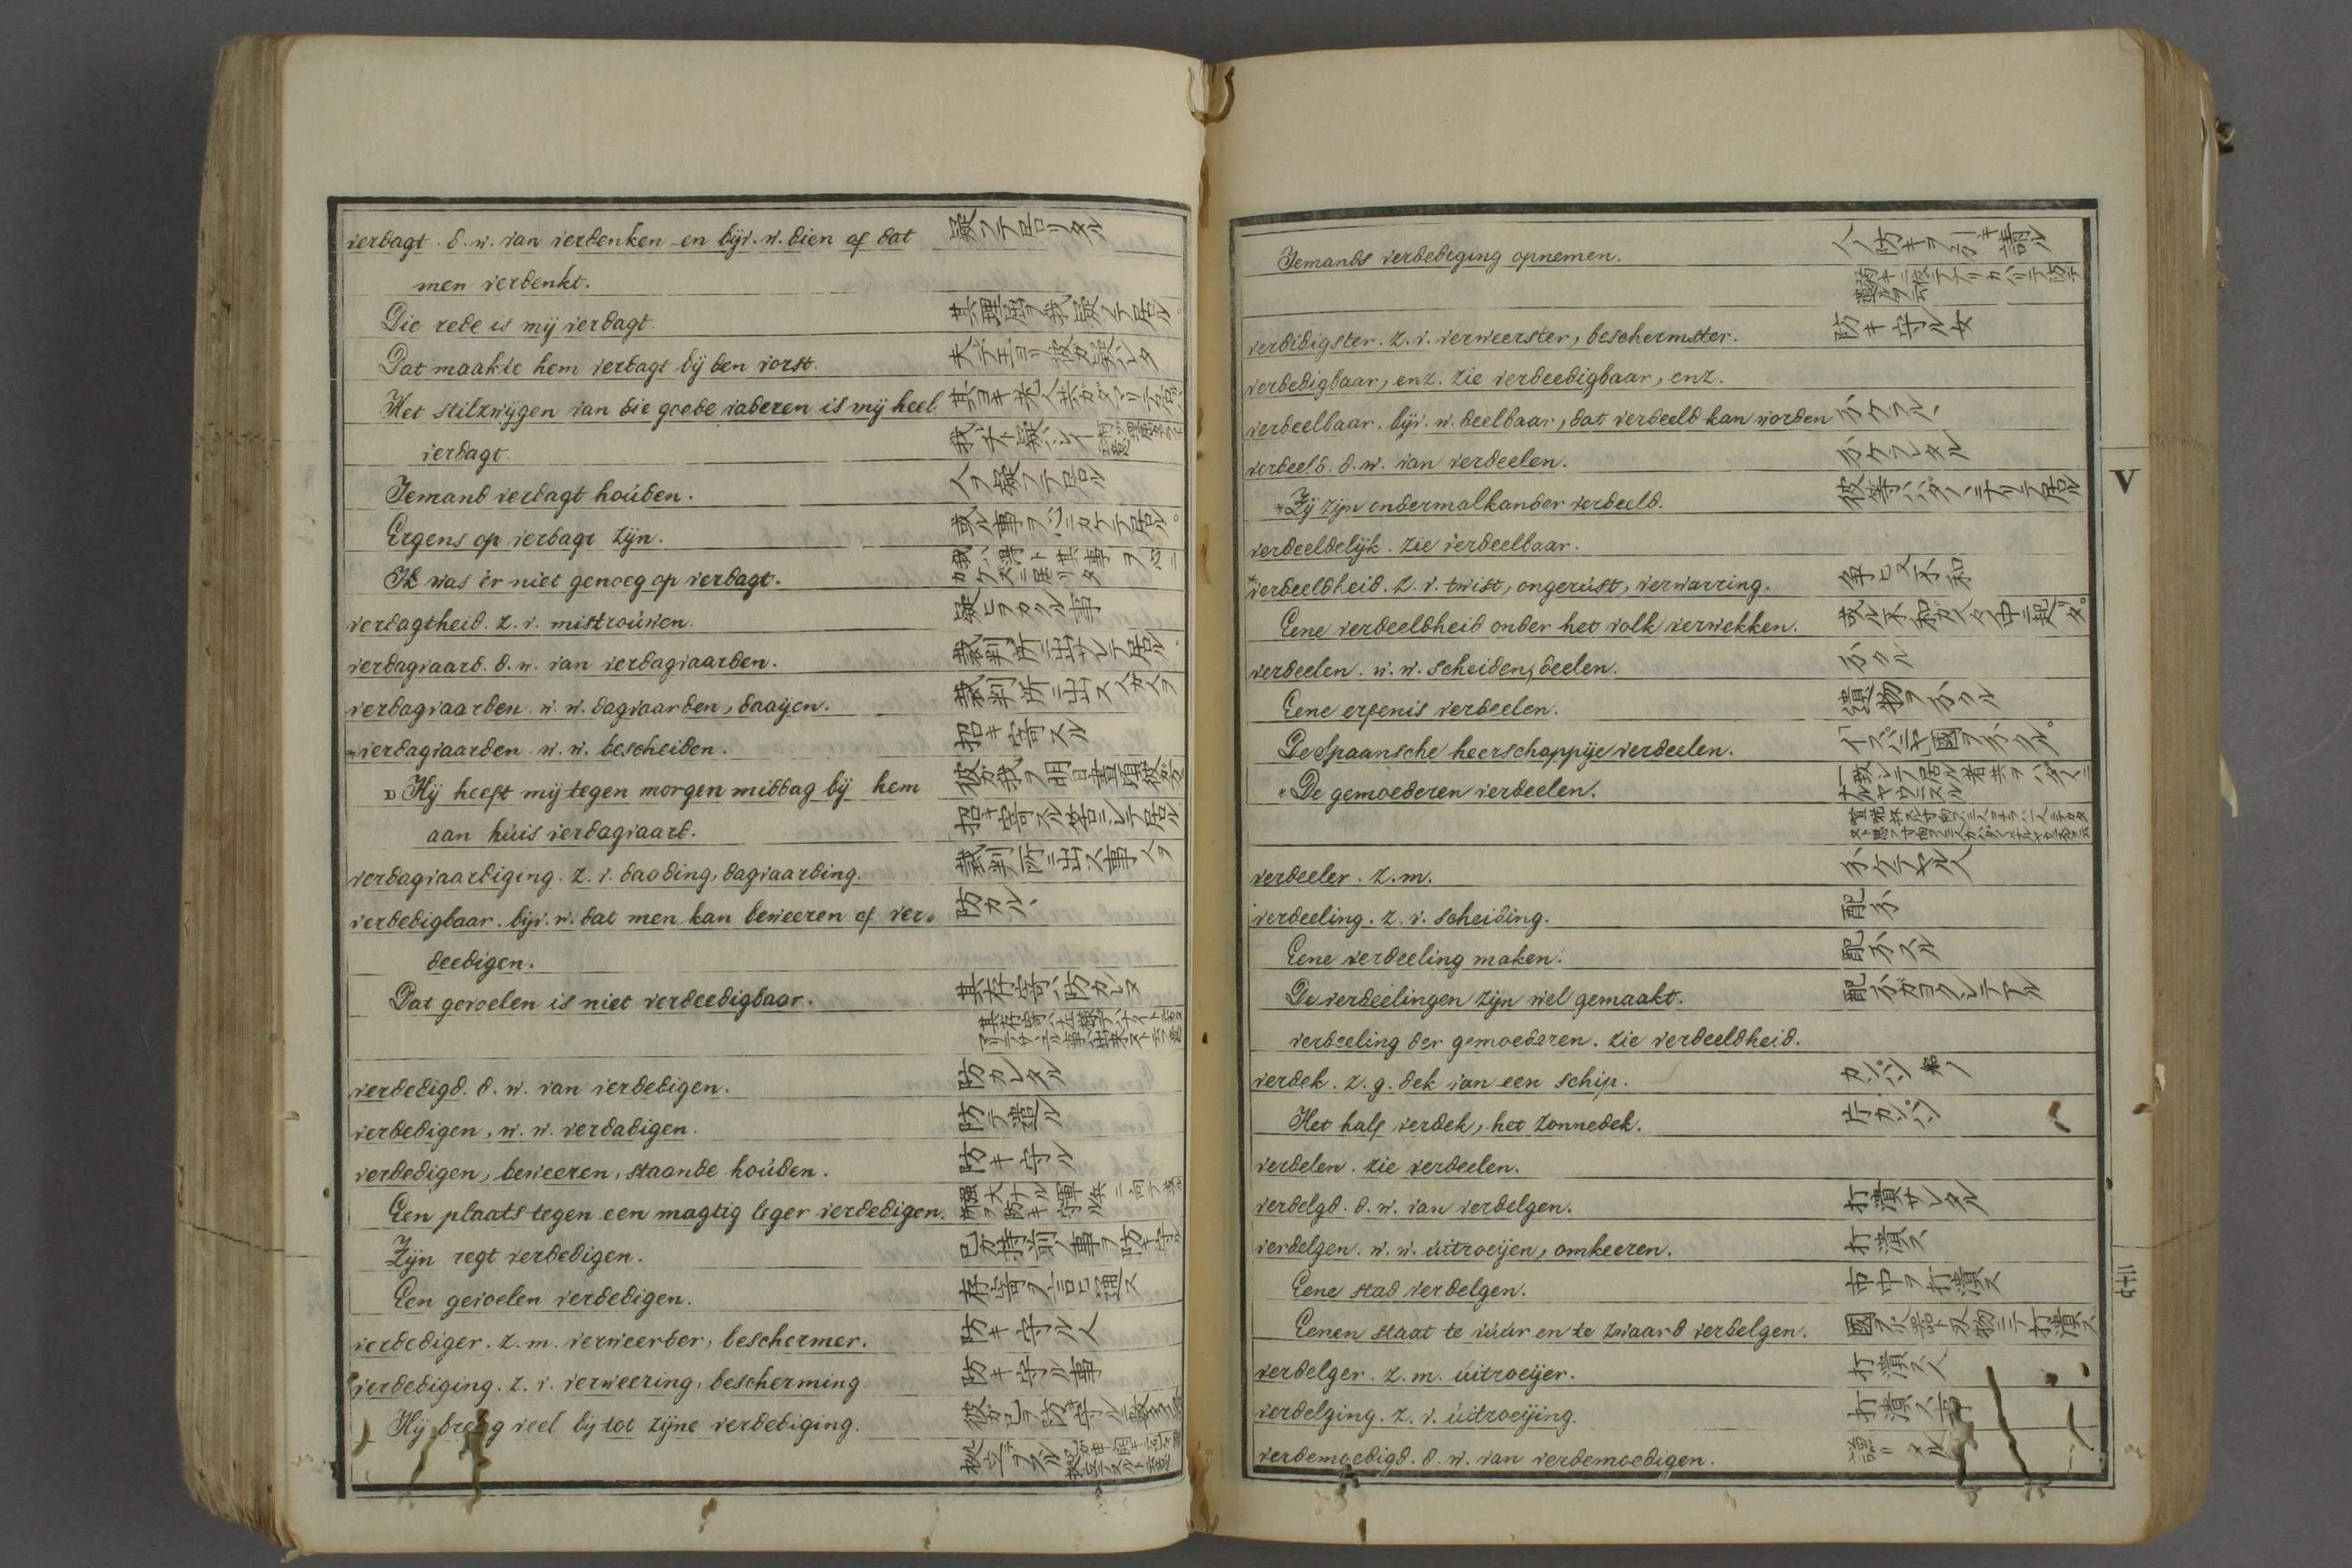 verdagt. d. w. van verdenken en bijv. w. dien of dat 疑フテ居リタル
men verdenkt.
Die rede is mij verdagt. 其理屈ヲ我疑フテ居ル。
Dat maakte hem verdagt bij den vorst.
Het stilzwijgen van die goede vaderen is mij heel
verdagt.
Iemand verdagt houden. 人ヲ疑フテ居ル
Ergens op verdagt zijn. 或ル事ヲ心ニカケテ居ル。
Ik was er niet genoeg op verdagt. 我ハ得ト其事ヲ心ニカケズニ居ツタ
verdagtheid. z. v. mistroúwen. 疑ヒヲカクル事
verdagvaard. d. w. van verdagvaarden. 裁判所ニ出サレテ居ル。
verdagvaarden. w. w. dagvaarden, daaijen. 裁判所ニ出ス人ヲ
*verdagvaarden. w. w. bescheiden. 招キ寄スル
Hij heeft mij tegen morgen middag bij hem 彼ガ我ヲ明日晝頃彼ガ宅
aan húis verdagvaard. 招キ寄スル
verdagvaardiging. z. v. daading, dagvaarding. 裁判所ニ出ス事人ヲ
verdedigbaar. bijv. w. dat men kan beweeren of ver= 防カルヽ
deedigen.
Dat gevoelen is niet verdeedigbaar. 其存寄ハ防カレヌ
verdedigd. d. w. van verdedigen. 防カレタル
verdedigen, w. w. verdadigen. 防テ遣ル
verdedigen, beweeren, staande hoúden. 防キ守ル
Een plaats tegen een magtig leger verdedigen. 強大ナル軍兵ニ向テ或所ヲ防キ守ル
Zijn regt verdedigen. 己ガ持前ノ事ヲ防キ守ル
Een gevoelen verdedigen. 存寄ヲ言ヒ通ス
verdediger. z. m. verweerder, beschermer. 防キ守ル人
verdediging. z. v. verweering, bescherming. 防キ守ル事
Hij breng veel bij tot zijne verdediging.
Iemands verdediging opnemen.
verdidigster. z. v. verweerster, beschermster. 防キ守ル女
verdedigbaar, enz. zie verdeedigbaar, enz.
verdeelbaar. bijv. w. deelbaar, dat verdeeld kan worden 分ケラルヽ
verdeeld. d. w. van verdeelen. 分ケラレタル
*Zij zijn ondermalkander verdeeld.
verdeeldelijk. zie verdeelbaar.
*verdeeldheid. z. v. twist, ongerúst, verwarring. 争ヒ又不和
Eene verdeeldheid onder het volk verwekken.
verdeelen. w. w. scheiden, deelen. 分クル
Eene erfenis verdeelen. 遺物ヲ分クル
De Spaansche heerschappije verdeelen. イスパニヤ國ヲ分クル。
*De gemoederen verdeelen.
verdeeler. z. m. 分ケテヤル人
verdeeling. z. v. scheiding. 配分
Eene verdeeling maken. 配分スル
De verdeelingen zijn wel gemaakt. 配分ガヨクシテアル
verdeeling der gemoederen. zie verdeeldheid.
verdek. z. g. dek van een schip. カンパン 船ノ
Het half verdek, het zonnedek. 片カンパン
verdelen. zie verdeelen.
verdelgd. d. w. van verdelgen. 打潰サレタル
verdelgen. w. w. úitroeijen, omkeeren. 打潰ス
Eene stad verdelgen. 市中ヲ打潰ス
Eenen staat te vúúr en te zwaard verdelgen. 國ヲ火器ト刃物ニテ打潰ス
verdelger. z. m. úitroeijer. 打潰ス人
verdelging. z. v. úitroeijing. 打潰ス事
verdemoedigd. d. w. van verdemoedigen.
V